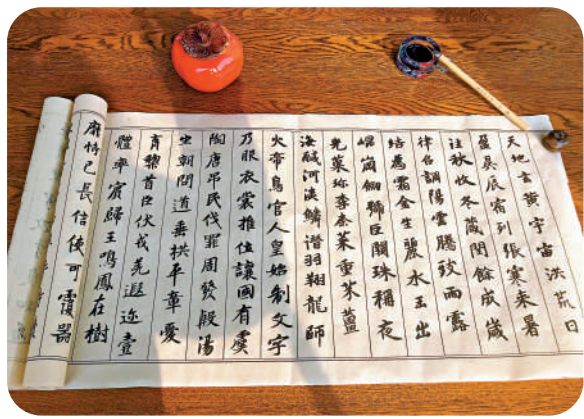 天地玄黃宇宙洪荒日
盈昃辰宿列張寒来暑
往秋收冬藏閏餘成歲
律呂調陽雲騰致雨露
結為霜金生麗水玉出
崐崗劍號巨闕珠稱夜
光菓珍李柰菜重芥薑
海鹹河淡鱗潛羽翔龍師
火帝鳥官人皇始制文字
乃服衣裳推位讓國有虞
陶唐吊民伐罪周發殷湯
坐朝問道垂拱平章愛
育黎首臣伏戎羌遐迩壹
體率賓歸王鳴鳳在樹
靡恃己長信使可覆器